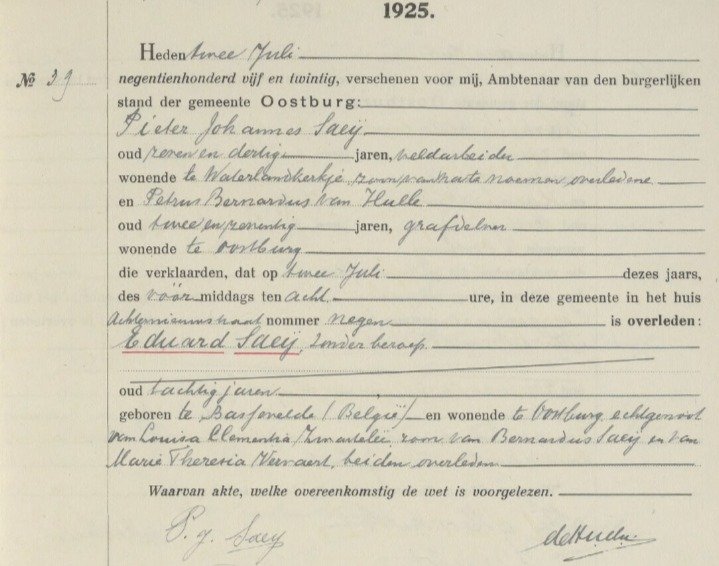 1925.
Heden twee Juli
Nº 39
negentienhonderd vijf en twintig, verschenen voor mij, Ambtenaar van den burgerlijken
stand der gemeente Oostburg:
Pieter Johannes Saeij
oud zeven en dertig jaren, veldarbeider
wonende te Waterlandkerkje zoon van na te noemen overledene
en Petrus Bernardus van Hulle
oud twee en zeventig jaren, grafdelver
wonende te Oostburg
die verklaarden, dat op twee Juli dezes jaars,
des vóór middags ten acht ure, in deze gemeente in het huis
nommer negen is overleden:
Eduard Saeij, zonder beroep
oud tachtig jaren
geboren te Bassevelde (België) en wonende te Oostburg echtgenoot
van Louisa Clementia zoon van Bernardus Saeij en van
Marie Theresia Vervaert, beiden overleden
Waarvan akte, welke overeenkomstig de wet is voorgelezen.
P. J. Saeij